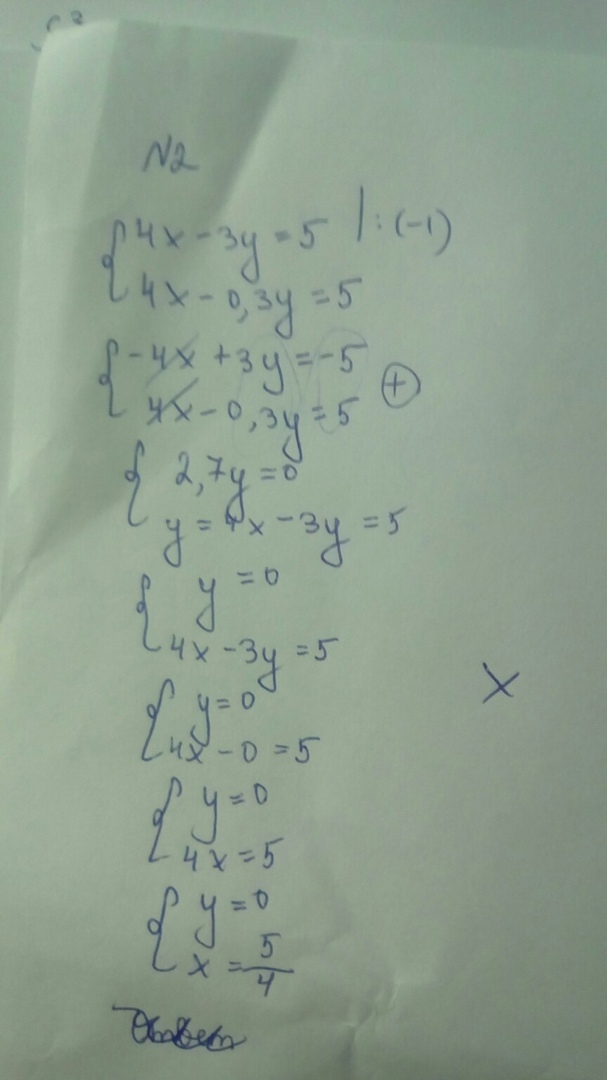 N2
{ 4x - 3y = 5 | : (-1)
4x - 0,3y = 5
{ -4x + 3y = -5
4x - 0,3y = 5 (+)
{ 2,7y = 0
y = 4x - 3y = 5
{ y = 0
4x - 3y = 5
{ y = 0
4x - 0 = 5
x
{ y = 0
4x = 5
{ y = 0
x = 5/4